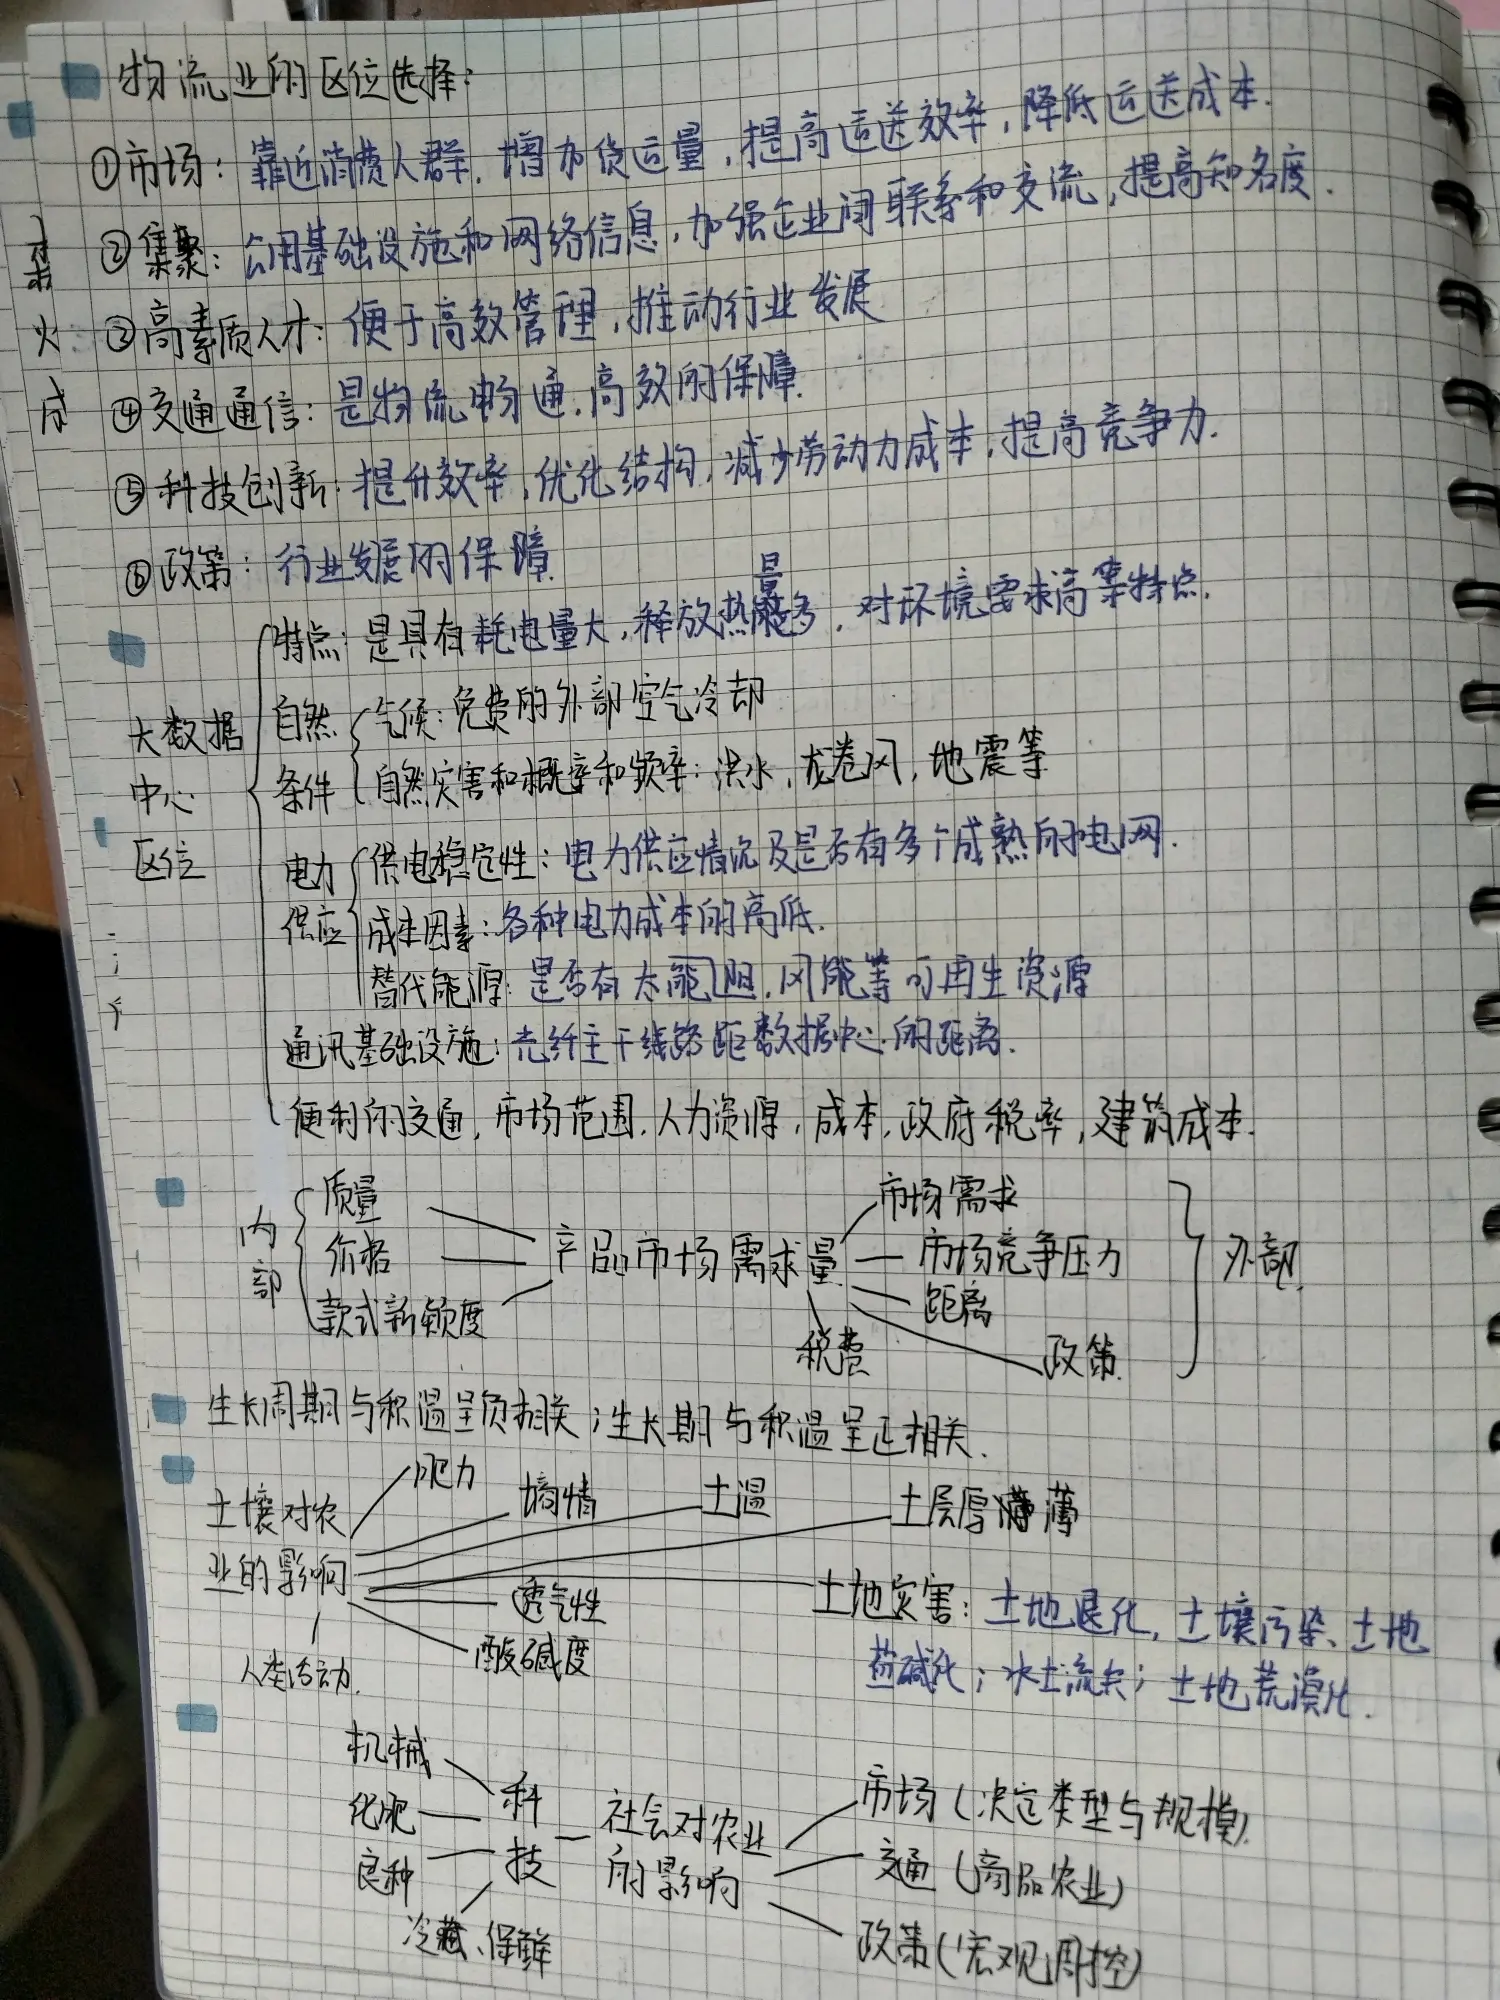 物流业的区位选择:
①市场: 靠近消费人群, 增加货运量, 提高运送效率, 降低运送成本.
②集聚: 公用基础设施和网络信息, 加强企业间联系和交流, 提高知名度.
③高素质人才: 便于高效管理, 推动行业发展
④交通通信: 是物流畅通.高效的保障.
⑤科技创新: 提升效率, 优化结构, 减少劳动力成本, 提高竞争力.
⑥政策: 行业发展的保障.
大数据中心区位
特点: 是具有耗电量大, 释放热量多, 对环境要求高等特点.
自然条件
气候: 免费的外部空气冷却
自然灾害和概率和频率: 洪水, 龙卷风, 地震等
电力供应
供电稳定性: 电力供应情况及是否有多个成熟的电网.
成本因素: 各种电力成本的高低.
替代能源: 是否有太能阳, 风能等可再生资源
通讯基础设施: 光纤主干线路距数据中心的距离.
便利的交通, 市场范围, 人力资源, 成本, 政府税率, 建筑成本.
内部
质量
价格
款式新颖度
产品市场需求量
市场需求
市场竞争压力
距离
税费
政策
外部
生长周期与积温呈负相关;生长期与积温呈正相关.
土壤对农业的影响
肥力
墒情
土温
土层厚薄
透气性
酸碱度
人类活动.
土地灾害: 土地退化, 土壤污染、土地
盐碱化; 水土流失; 土地荒漠化.
机械
化肥
良种
冷藏、保鲜
科技
社会对农业的影响
市场(决定类型与规模).
交通(商品农业)
政策(宏观调控)